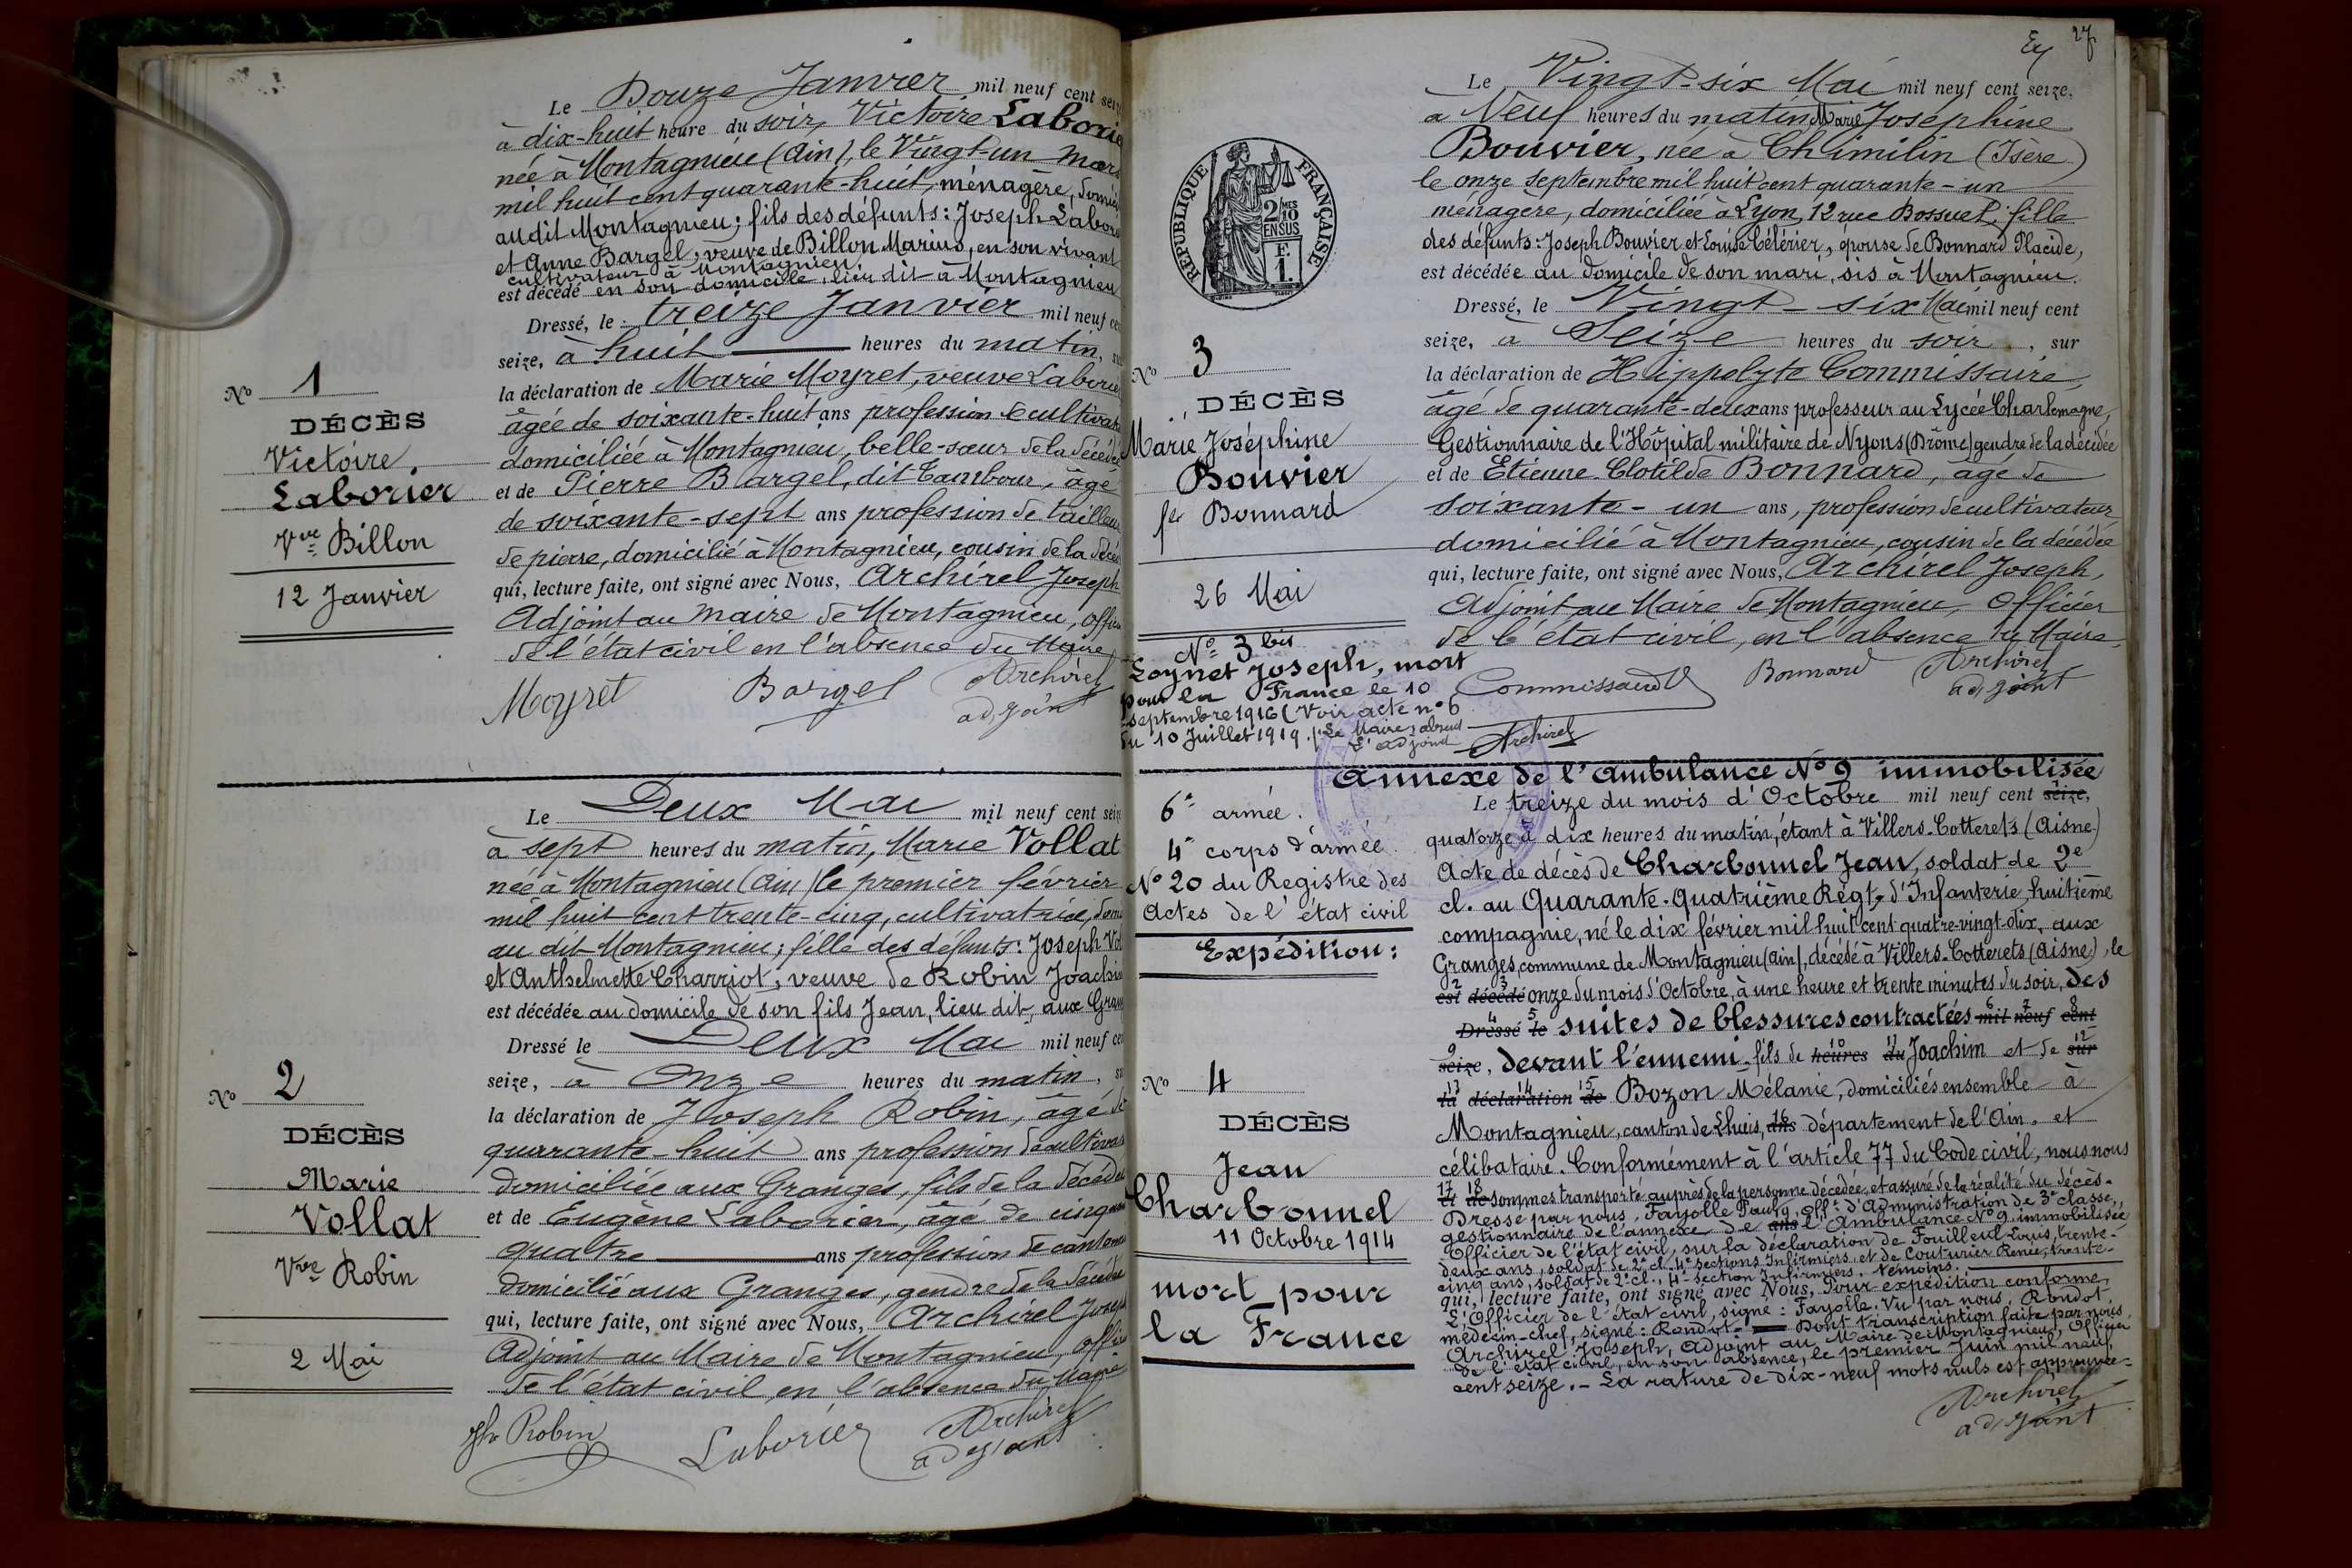 Le Douze Janvier mil neuf cent
à dix-huit heure du soir, Victoire Laborier
née à Montagnieu (Ain), le Vingt-un Mars
mil huit cent quarante-huit, ménagère,
audit Montagnieu; fils des défunts: Joseph
et Anne Bargel, veuve de Billon Marius, en son vivant
cultivateur à Montagnieu,
est décédé en son domicile, lieu dit à Montagnieu
Dressé, le treize Janvier mil neuf
seize, à huit heures du matin,
la déclaration de Marie Moyret, veuve Laborier
âgée de soixante-huit ans profession de
domiciliée à Montagnieu, belle-sœur de la
et de Pierre Bargel, dit Tambour, âgé
de soixante-sept ans profession de tailleur
de pierre, domicilié à Montagnieu, cousin de la
qui, lecture faite, ont signé avec Nous, Archirel Joseph
Adjoint au maire de Montagnieu,
de l'état civil en l'absence du Maire
Moyret Bargel Archirel
adjoint
No 1
DÉCÈS
Victoire
Laborier
Vve Billon
12 Janvier
Le Deux Mai mil neuf cent
à sept heures du matin, Marie Vollat
née à Montagnieu (Ain) le premier février
mil huit cent trente-cinq, cultivatrice,
au dit Montagnieu; fille des défunts: Joseph
et Anthelmette Charriot, veuve de Robin Joachim
est décédée au domicile de son fils Jean, lieu dit, aux
Dressé le Deux Mai mil neuf
seize, à Onze heures du matin,
la déclaration de Joseph Robin, âgé de
quarante-huit ans profession de
domiciliée aux Granges, fils de la décédée
et de Eugène Laborier, âgé de
quatre ans profession de
domicilié aux Granges, gendre de la décédée
qui, lecture faite, ont signé avec Nous, Archirel Joseph
Adjoint au Maire de Montagnieu,
de l'état civil, en l'absence du Maire
Jh Robin Laborier Archirel
adjoint
No 2
DÉCÈS
Marie
Vollat
Vve Robin
2 Mai
27
Le Vingt-six Mai mil neuf cent seize,
à Neuf heures du matin Marie Joséphine
Bouvier, née à Chimilin (Isère)
le onze Septembre mil huit cent quarante-un
ménagère, domiciliée à Lyon, 12 rue Bossuet; fille
des défunts: Joseph Bouvier et Louise Célérier, épouse de Bonnard Placide,
est décédée au domicile de son mari, sis à Montagnieu.
Dressé, le Vingt-six Mai mil neuf cent
seize, à Seize heures du soir, sur
la déclaration de Hippolyte Commissaire,
âgé de quarante-deux ans professeur au Lycée Charlemagne,
Gestionnaire de l'Hôpital militaire de Nyons (Drôme) gendre de la décédée
et de Etienne Clotilde Bonnard, âgé de
soixante-un ans, profession de cultivateur
domicilié à Montagnieu, cousin de la décédée
qui, lecture faite, ont signé avec Nous, Archirel Joseph,
Adjoint au Maire de Montagnieu, Officier
de l'état civil, en l'absence du Maire
Commissaire Bonnard Archirel
adjoint
RÉPUBLIQUE FRANÇAISE
2 MES
10
EN SUS
F.
1.
No 3
DÉCÈS
Marie Joséphine
Bouvier
fe Bonnard
26 Mai
No 3 bis
Loynet Joseph, mort
pour la France le 10
septembre 1916 (Voir acte no 6
du 10 Juillet 1919. Le Maire absent
L'adjoint Archirel
Annexe de l'ambulance No 9 immobilisée
Le treize du mois d'Octobre mil neuf cent seize,
quatorze à dix heures du matin, étant à Villers-Cotterets (Aisne)
Acte de décès de Charbonnel Jean, soldat de 2e
cl. au Quarante-Quatrième Régt d'Infanterie, huitième
compagnie, né le dix février mil huit cent quatre-vingt-dix, aux
Granges, commune de Montagnieu (Ain), décédé à Villers-Cotterets (Aisne), le
2 3 est décédé onze du mois d'Octobre, à une heure et trente minutes du soir, des
4 5 6 7 8 Dressé le suites de blessures contractées mil neuf cent
9 10 11 12 seize, devant l'ennemi, fils de heures du Joachim et de sur
13 14 15 la déclaration de Bozon Mélanie, domiciliés ensemble à
Montagnieu, canton de Lhuis, 16 ans département de l'Ain, et
célibataire. Conformément à l'article 77 du Code civil, nous nous
17 18 et de sommes transporté auprès de la personne décédée, et assuré de la réalité du décès.
Dressé par nous, Fayolle Fauny, offr d'Administration de 3e classe,
gestionnaire de l'annexe de 19 ans l'Ambulance No 9, immobilisée
Officier de l'état civil, sur la déclaration de Fouilleul Louis, trente-
deux ans, soldat de 2e cl. 4e sections Infirmiers, et de Couturier Renée, trente-
cinq ans, soldat de 2e cl., 4e section Infirmiers, témoins.
qui, lecture faite, ont signé avec Nous, Pour expédition conforme,
L'Officier de l'état civil, signé: Fayolle. Vu par nous, Rondot,
médecin-chef, signé: Rondot. Dont transcription faite par nous,
Archirel Joseph, Adjoint au Maire de Montagnieu, Officier
de l'état civil, en son absence, le premier Juin mil neuf
cent seize. - La rature de dix-neuf mots nuls est approuvée
Archirel
adjoint
6e armée.
4e corps d'armée.
No 20 du Registre des
Actes de l'état civil
Expédition:
No 4
DÉCÈS
Jean
Charbonnel
11 Octobre 1914
mort pour
la France